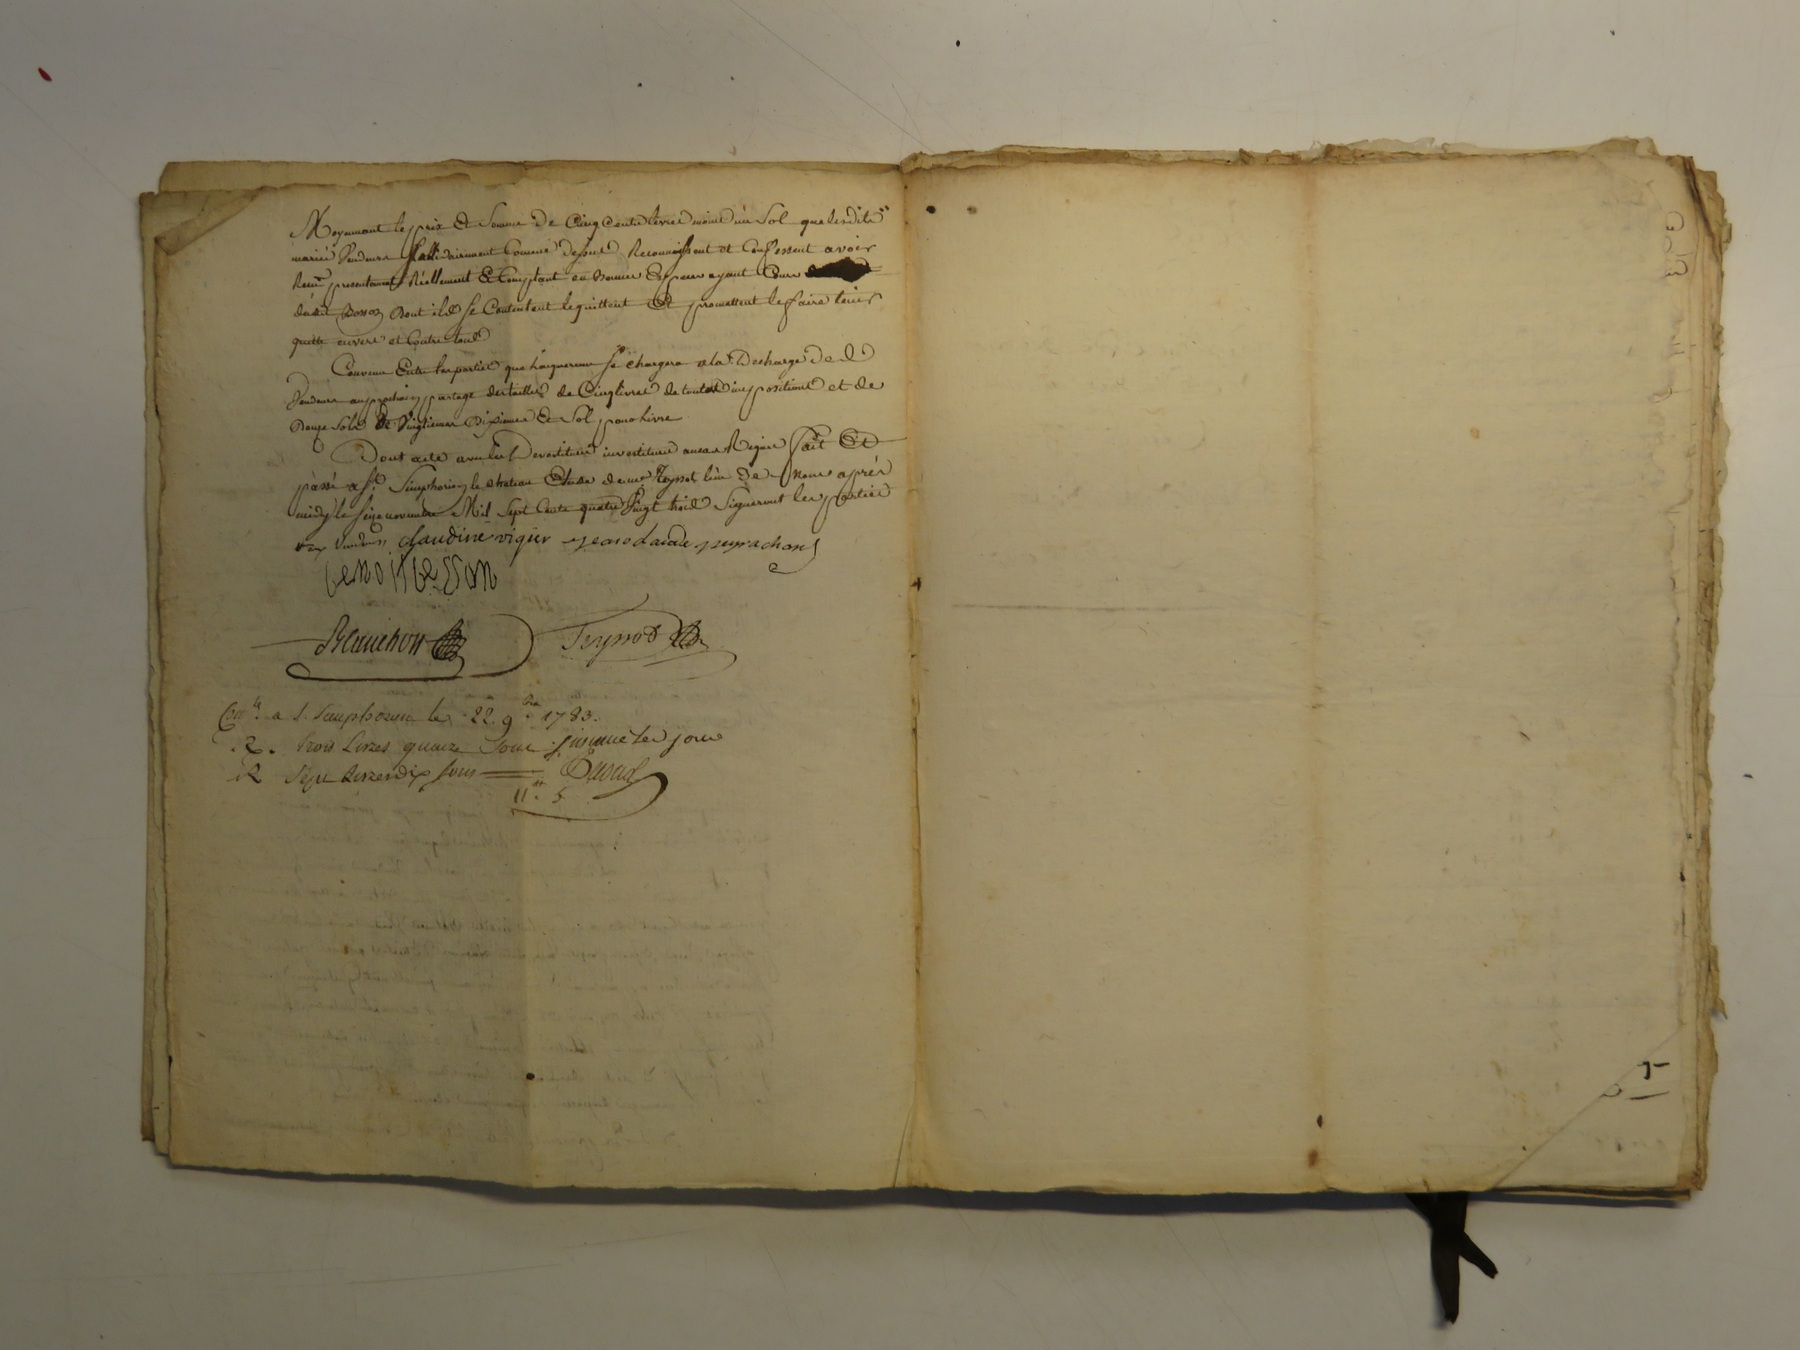 Moyennant le prix Et Somme de Cinq Cents livres moins un Sol que lesdits
mariés Vendeurs Sollidairement Comme dessus Reconnoissent et Confessent avoir
Reçu presentement Réellement Et Comptant en Bonnes Especes ayant Cours
dudit Besson Dont ils se Contentent le quittent Et promettent le faire tenir
quitte envers et Contre tous
Convenu Entre les parties que l'acquereur se chargera a la Decharge des
Vendeurs au prochain partage des tailles de Cinq livres de toutes impositions et de
Douze Sols de Vingtiemes Dixieme Et Sol pour livre
Dont acte avec les Devestiture investiture Fait Et
passé a St. Simphorien le chateau Etude de me Teyssot l'un de Nous après
midy le seize novembre Mil Sept Cents quatre Vingt trois Signeront les parties
Vendeurs claudine vigier peyrachon
benoit besson
Teyssot
a S. Simphorien le 22. 9bre 1783.
R. trois Livres quinze Sous
R Sept Livres dix sous
11tt. 5